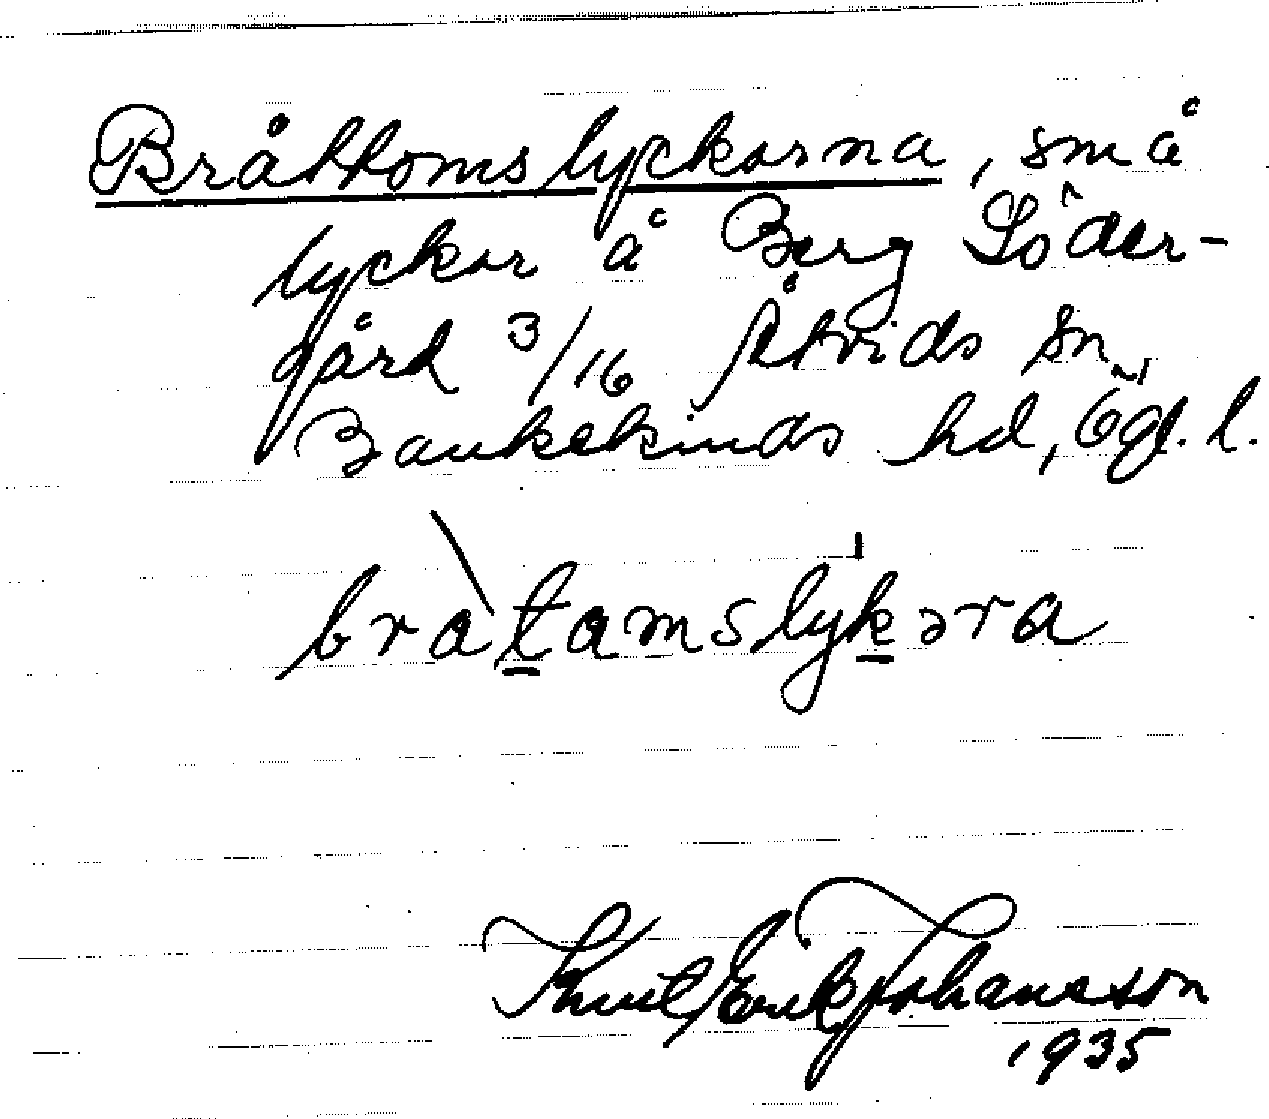 Bråttomslyckorna, små
lyckor å Berg Söder-
gård 3/16 Åtvids sn
Bankekinds hd, Ögl. l.
bratamslykəra
Knut Erik Johansson
1935